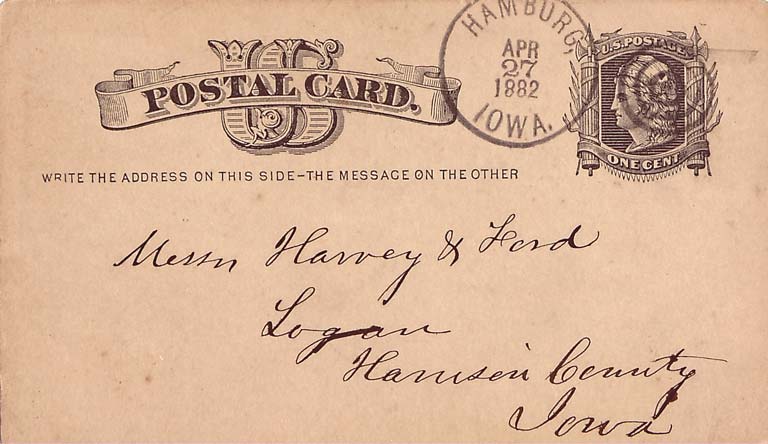 US
POSTAL CARD.
HAMBURG.
APR
27
1882
IOWA.
U.S. POSTAGE
ONE CENT
WRITE THE ADDRESS ON THIS SIDE–THE MESSAGE ON THE OTHER
Messrs Harvey & Ford
Logan
Harrison County
Iowa